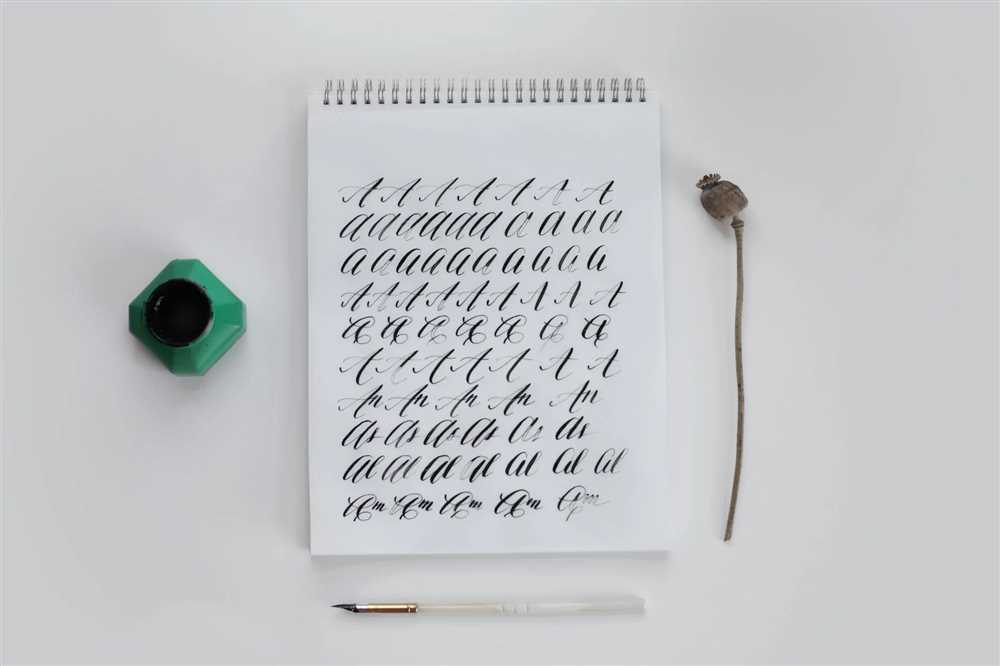 A A A A A A A
a a a a a a a a a a
a a a a a a a a a a
A A A A A A A A A
A A A A A A A
A A A A A A A
An An An An An
As As As As As As
al al al al al al al
Am Am Am Am Am